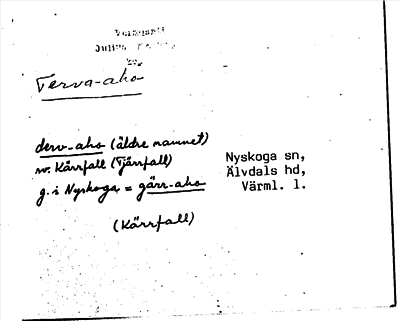 Terva-aho
derv-aho (äldre namnet)
nv. Kärrfall (Tjärrfall)
g. i Nyskoga = gärr-aho
(Kärrfall)
Nyskoga sn,
Älvdals hd,
Värml. l.